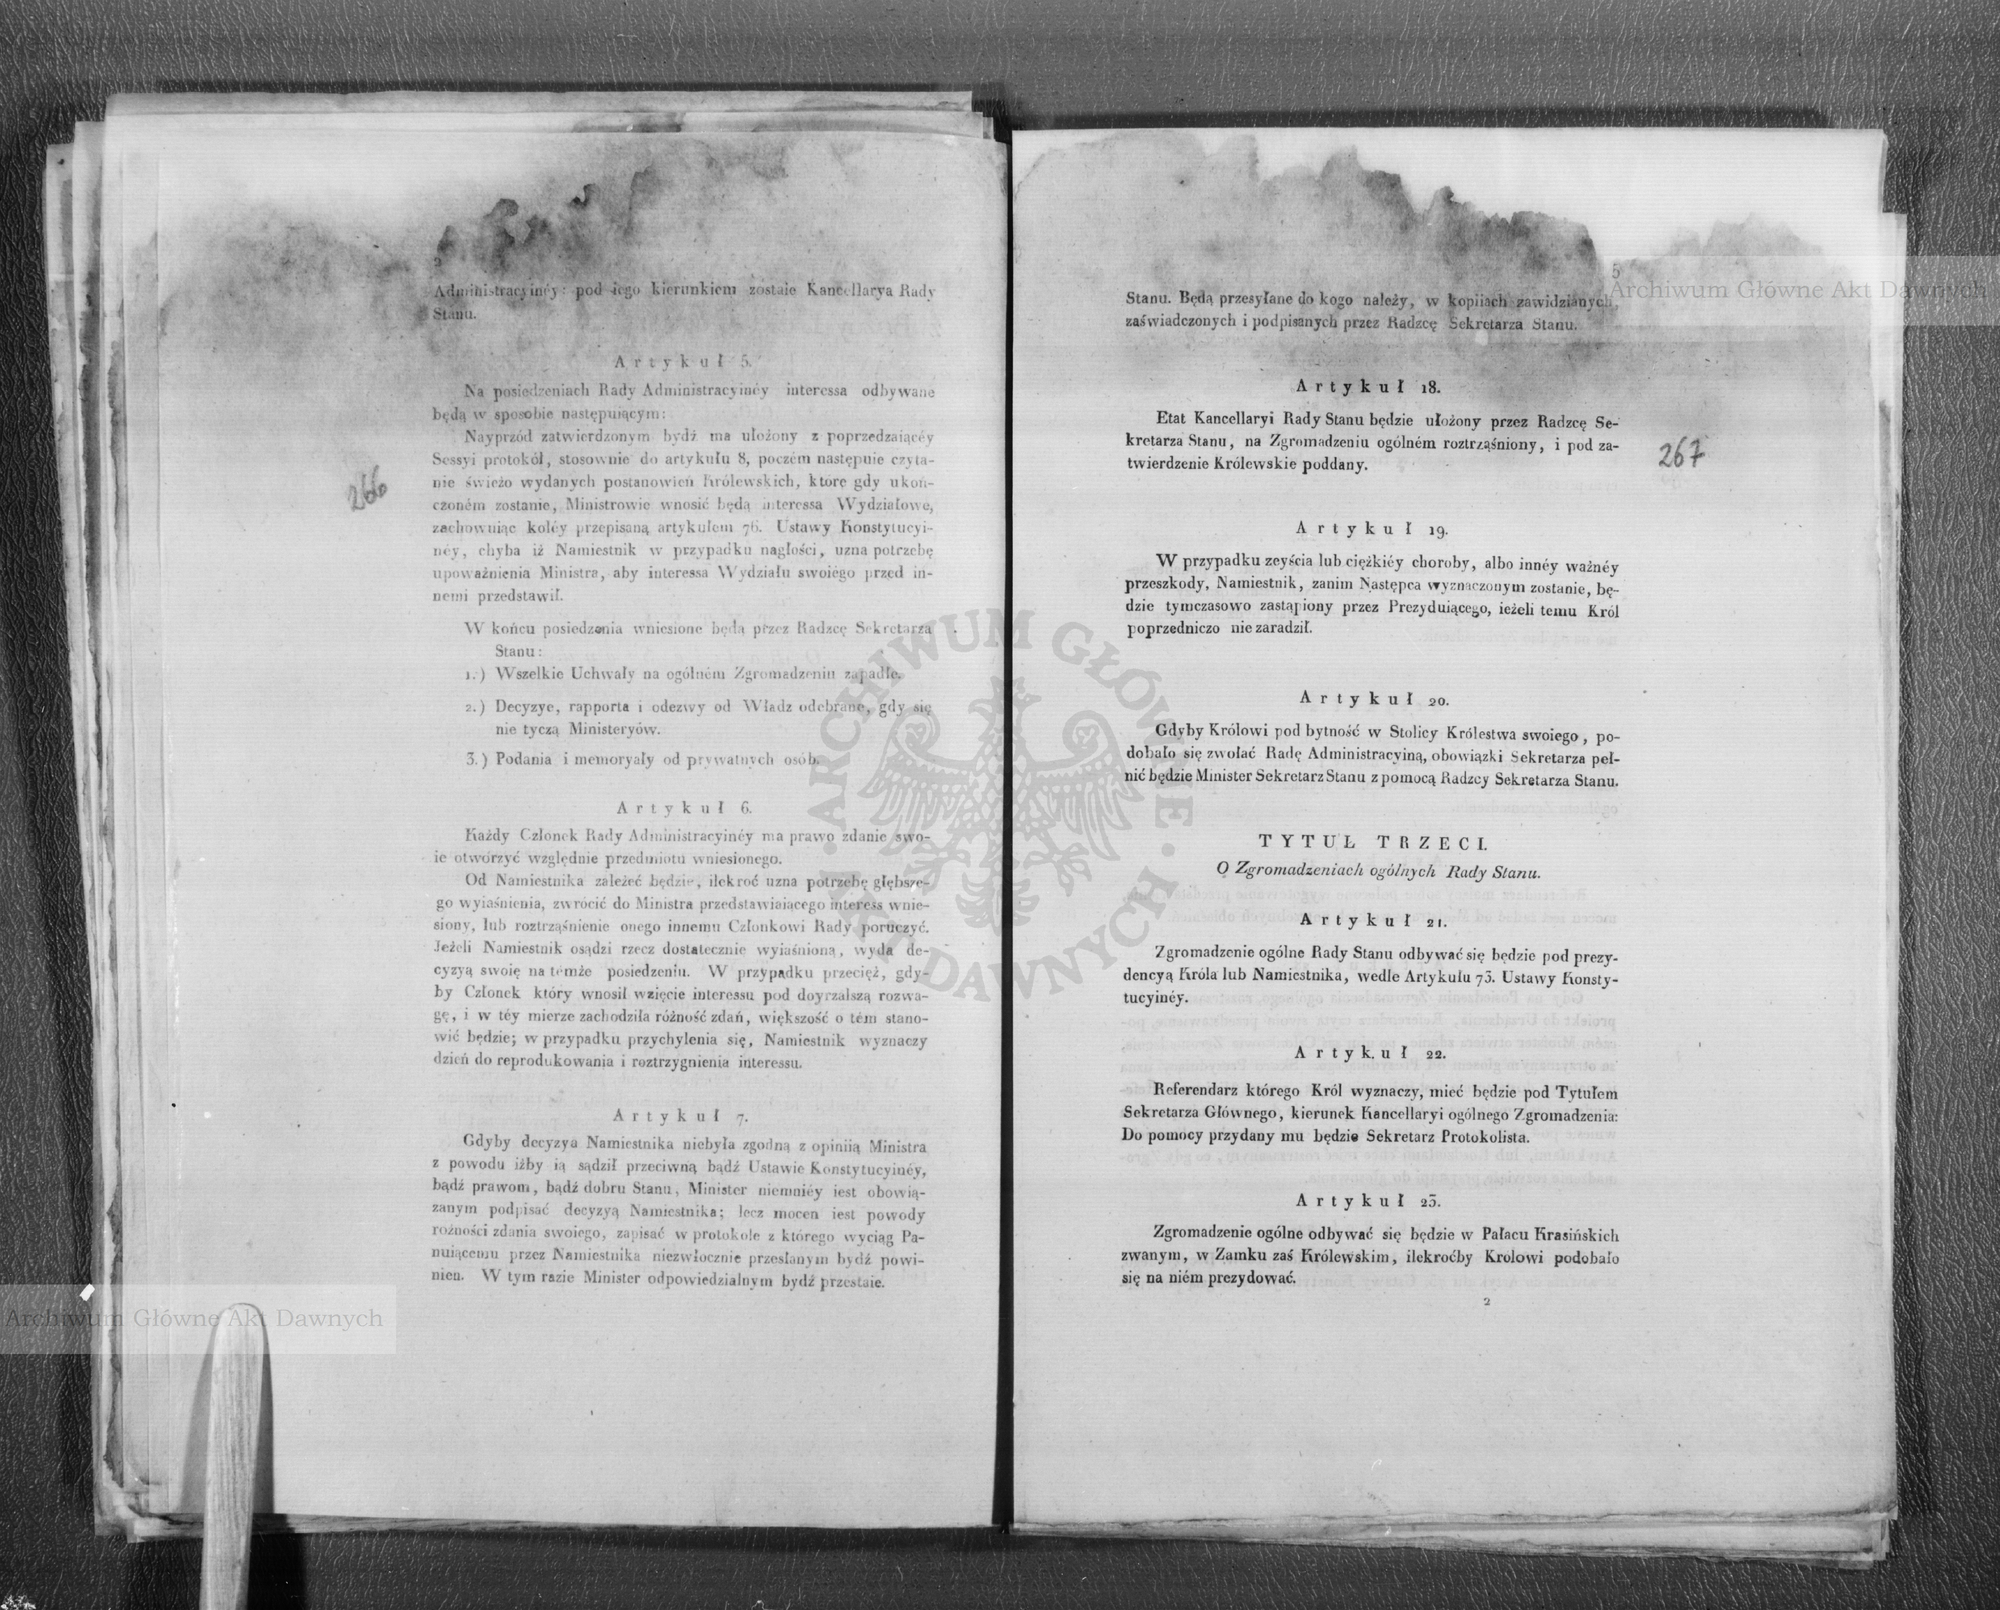 2
Administracyinéy: pod iego kierunkiem zostaie Kancellarya Rady
Stanu.
Artykuł 5.
Na posiedzeniach Rady Administracyinéy interessa odbywane
będą w sposobie następuiącym:
Nayprzód zatwierdzonym bydź ma ułożony z poprzedzaiącéy
Sessyi protokół, stosownie do artykułu 8, poczém następuie czyta-
nie świeżo wydanych postanowień Królewskich, które gdy ukoń-
czoném zostanie, Ministrowie wnosić będą interessa Wydziałowe,
zachowuiąc koléy przepisaną artykułem 76. Ustawy Konstytucyi-
néy, chyba iż Namiestnik w przypadku nagłości, uzna potrzebę
upoważnienia Ministra, aby interessa Wydziału swoiégo przed in-
nemi przedstawił.
W końcu posiedzenia wniesione będą przez Radzcę Sekretarza
Stanu:
1.) Wszelkie Uchwały na ogólném Zgromadzeniu zapadłe.
2.) Decyzye, rapporta i odezwy od Władz odebrane, gdy się
nie tyczą Ministeryów.
3.) Podania i memoryały od prywatnych osób.
Artykuł 6.
Każdy Członek Rady Administracyinéy ma prawo zdanie swo-
ie otworzyć względnie przedmiotu wniesionego.
Od Namiestnika zależeć będzie, ilekroć uzna potrzebę głębsze-
go wyiaśnienia, zwrócić do Ministra przedstawiaiącego interess wnie-
siony, lub roztrząśnienie onego innemu Członkowi Rady poruczyć.
Jeżeli Namiestnik osądzi rzecz dostatecznie wyiaśnioną, wyda de-
cyzyą swoię na témże posiedzeniu. W przypadku przecięż, gdy-
by Członek który wnosił wzięcie interessu pod doyrzalszą rozwa-
gę, i w téy mierze zachodziła różność zdań, większość o tém stano-
wić będzie; w przypadku przychylenia się, Namiestnik wyznaczy
dzień do reprodukowania i roztrzygnienia interessu.
Artykuł 7.
Gdyby decyzya Namiestnika niebyła zgodną z opiniią Ministra
z powodu iżby ią sądził przeciwną bądź Ustawie Konstytucyinéy,
bądź prawom, bądź dobru Stanu, Minister niemniéy iest obowią-
zanym podpisać decyzyą Namiestnika; lecz mocen iest powody
rożności zdania swoiego, zapisać w protokole z którego wyciąg Pa-
nuiącemu przez Namiestnika niezwłocznie przesłanym bydź powi-
nien. W tym razie Minister odpowiedzialnym bydź przestaie.
266
5
Stanu. Będą przesyłane do kogo należy, w kopiiach zawidzianych,
zaświadczonych i podpisanych przez Radzcę Sekretarza Stanu.
Artykuł 18.
Etat Kancellaryi Rady Stanu będzie ułożony przez Radzcę Se-
kretarza Stanu, na Zgromadzeniu ogólném roztrząśniony, i pod za-
twierdzenie Królewskie poddany.
267
Artykuł 19.
W przypadku zeyścia lub ciężkiéy choroby, albo innéy ważnéy
przeszkody, Namiestnik, zanim Następca wyznaczonym zostanie, bę-
dzie tymczasowo zastąpiony przez Prezyduiącego, ieżeli temu Król
poprzedniczo nie zaradził.
Artykuł 20.
Gdyby Królowi pod bytność w Stolicy Królestwa swoiego, po-
dobało się zwołać Radę Administracyiną, obowiązki Sekretarza peł-
nić będzie Minister Sekretarz Stanu z pomocą Radzcy Sekretarza Stanu.
TYTUŁ TRZECI.
O Zgromadzeniach ogólnych Rady Stanu.
Artykuł 21.
Zgromadzenie ogólne Rady Stanu odbywać się będzie pod prezy-
dencyą Króla lub Namiestnika, wedle Artykułu 73. Ustawy Konsty-
tucyinéy.
Artykuł 22.
Referendarz którego Król wyznaczy, mieć będzie pod Tytułem
Sekretarza Głównego, kierunek Kancellaryi ogólnego Zgromadzenia:
Do pomocy przydany mu będzie Sekretarz Protokolista.
Artykuł 23.
Zgromadzenie ogólne odbywać się będzie w Pałacu Krasińskich
zwanym, w Zamku zaś Królewskim, ilekroćby Królowi podobało
się na niém prezydować.
2
Archiwum Główne Akt Dawnych
Archiwum Główne Akt Dawnych
ARCHIWUM GŁÓWNE AKT DAWNYCH